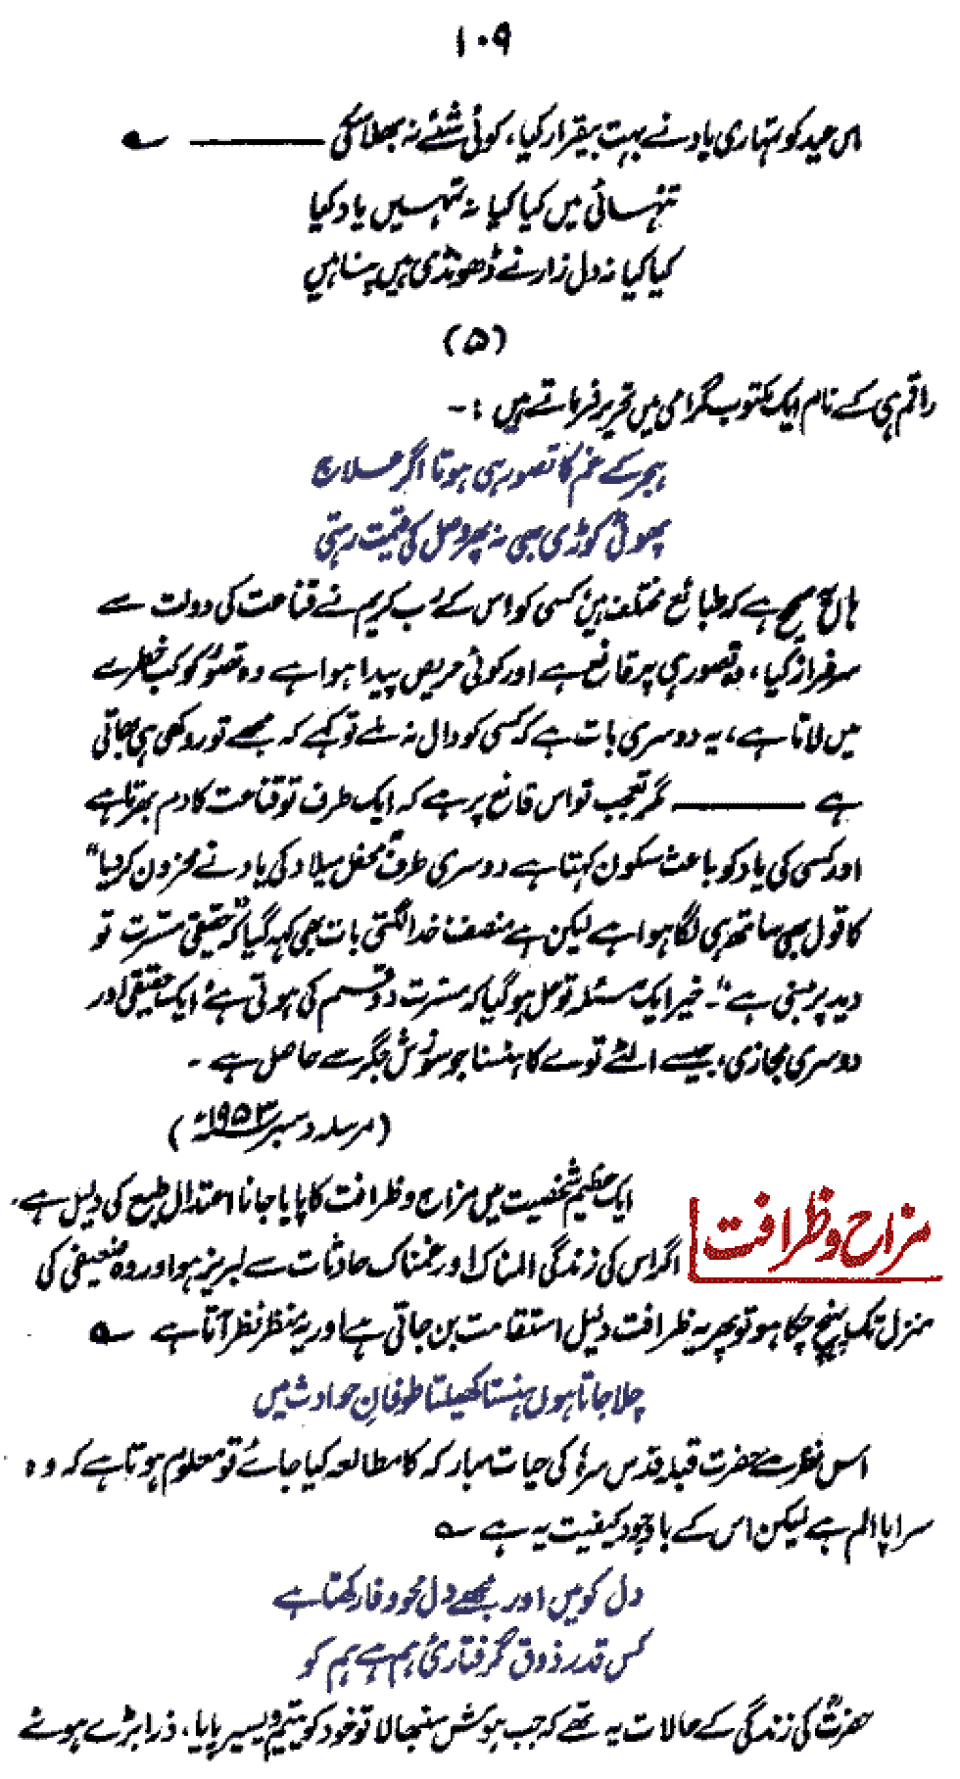 ۱۰۹
اس عید کو تمہاری یاد نے بہت بیقرار کیا، کوئی شئے نہ بھلا سکی ——— ؎
تنہائی میں کیا کیا نہ تمہیں یاد کیا
کیا کیا نہ دل زار نے ڈھونڈی ہیں پناہیں
(۵)
راقم ہی کے نام ایک مکتوب گرامی میں تحریر فرماتے ہیں :-
ہجر کے غم کا تصور ہی ہوتا اگر علاج
پھوٹی کوڑی بھی نہ پھر وصل کی قیمت رہتی
ہاں صحیح ہے کہ طبائع مختلف ہیں کسی کو اس کے رب کریم نے قناعت کی دولت سے
سرفراز کیا، وہ تصور ہی پر قانع ہے اور کوئی حریص پیدا ہوا ہے وہ تصور کو کب خطرے
میں لاتا ہے، یہ دوسری بات ہے کہ کسی کو دال نہ ملے تو کہے کہ مجھے تو روکھی ہی بھاتی
ہے ——— مگر تعجب تو اس قانع پر ہے کہ ایک طرف تو قناعت کا دم بھرتا ہے
اور کسی کی یاد کو باعث سکون کہتا ہے دوسری طرف "محفل میلاد کی یاد نے محزون کر دیا"
کا قول بھی ساتھ ہی لگا ہوا ہے لیکن ہے منصف خدا لگتی بات بھی کہہ گیا کہ "حقیقی مسرت تو
دید پر مبنی ہے"۔ خیر ایک مسئلہ تو حل ہو گیا کہ مسرت دو قسم کی ہوتی ہے ایک حقیقی اور
دوسری مجازی، جیسے الٹے توے کا ہنسنا جو سوزش جگر سے حاصل ہے۔
(مرسلہ دسمبر ۱۹۵۳ء)
مزاح و ظرافت
ایک عظیم شخصیت میں مزاح و ظرافت کا پایا جانا اعتدال طبع کی دلیل ہے۔
اگر اس کی زندگی المناک اور غمناک حادثات سے لبریز ہو اور وہ ضعیفی کی
منزل تک پہنچ چکا ہو تو پھر یہ ظرافت دلیل استقامت بن جاتی ہے اور یہ منظر نظر آتا ہے ؎
چلا جاتا ہوں ہنستا کھیلتا طوفانِ حوادث میں
اس نظر سے حضرت قبلہ قدس سرہٗ کی حیات مبارکہ کا مطالعہ کیا جائے تو معلوم ہوتا ہے کہ وہ
سراپا الم ہے لیکن اس کے باوجود کیفیت یہ ہے ؎
دل کو میں اور مجھے دل محو وفا رکھتا ہے
کس قدر ذوق گرفتاریٔ ہم ہے ہم کو
حضرتؒ کی زندگی کے حالات یہ تھے کہ جب ہوش سنبھالا تو خود کو یتیم و یسیر پایا، ذرا بڑے ہوئے